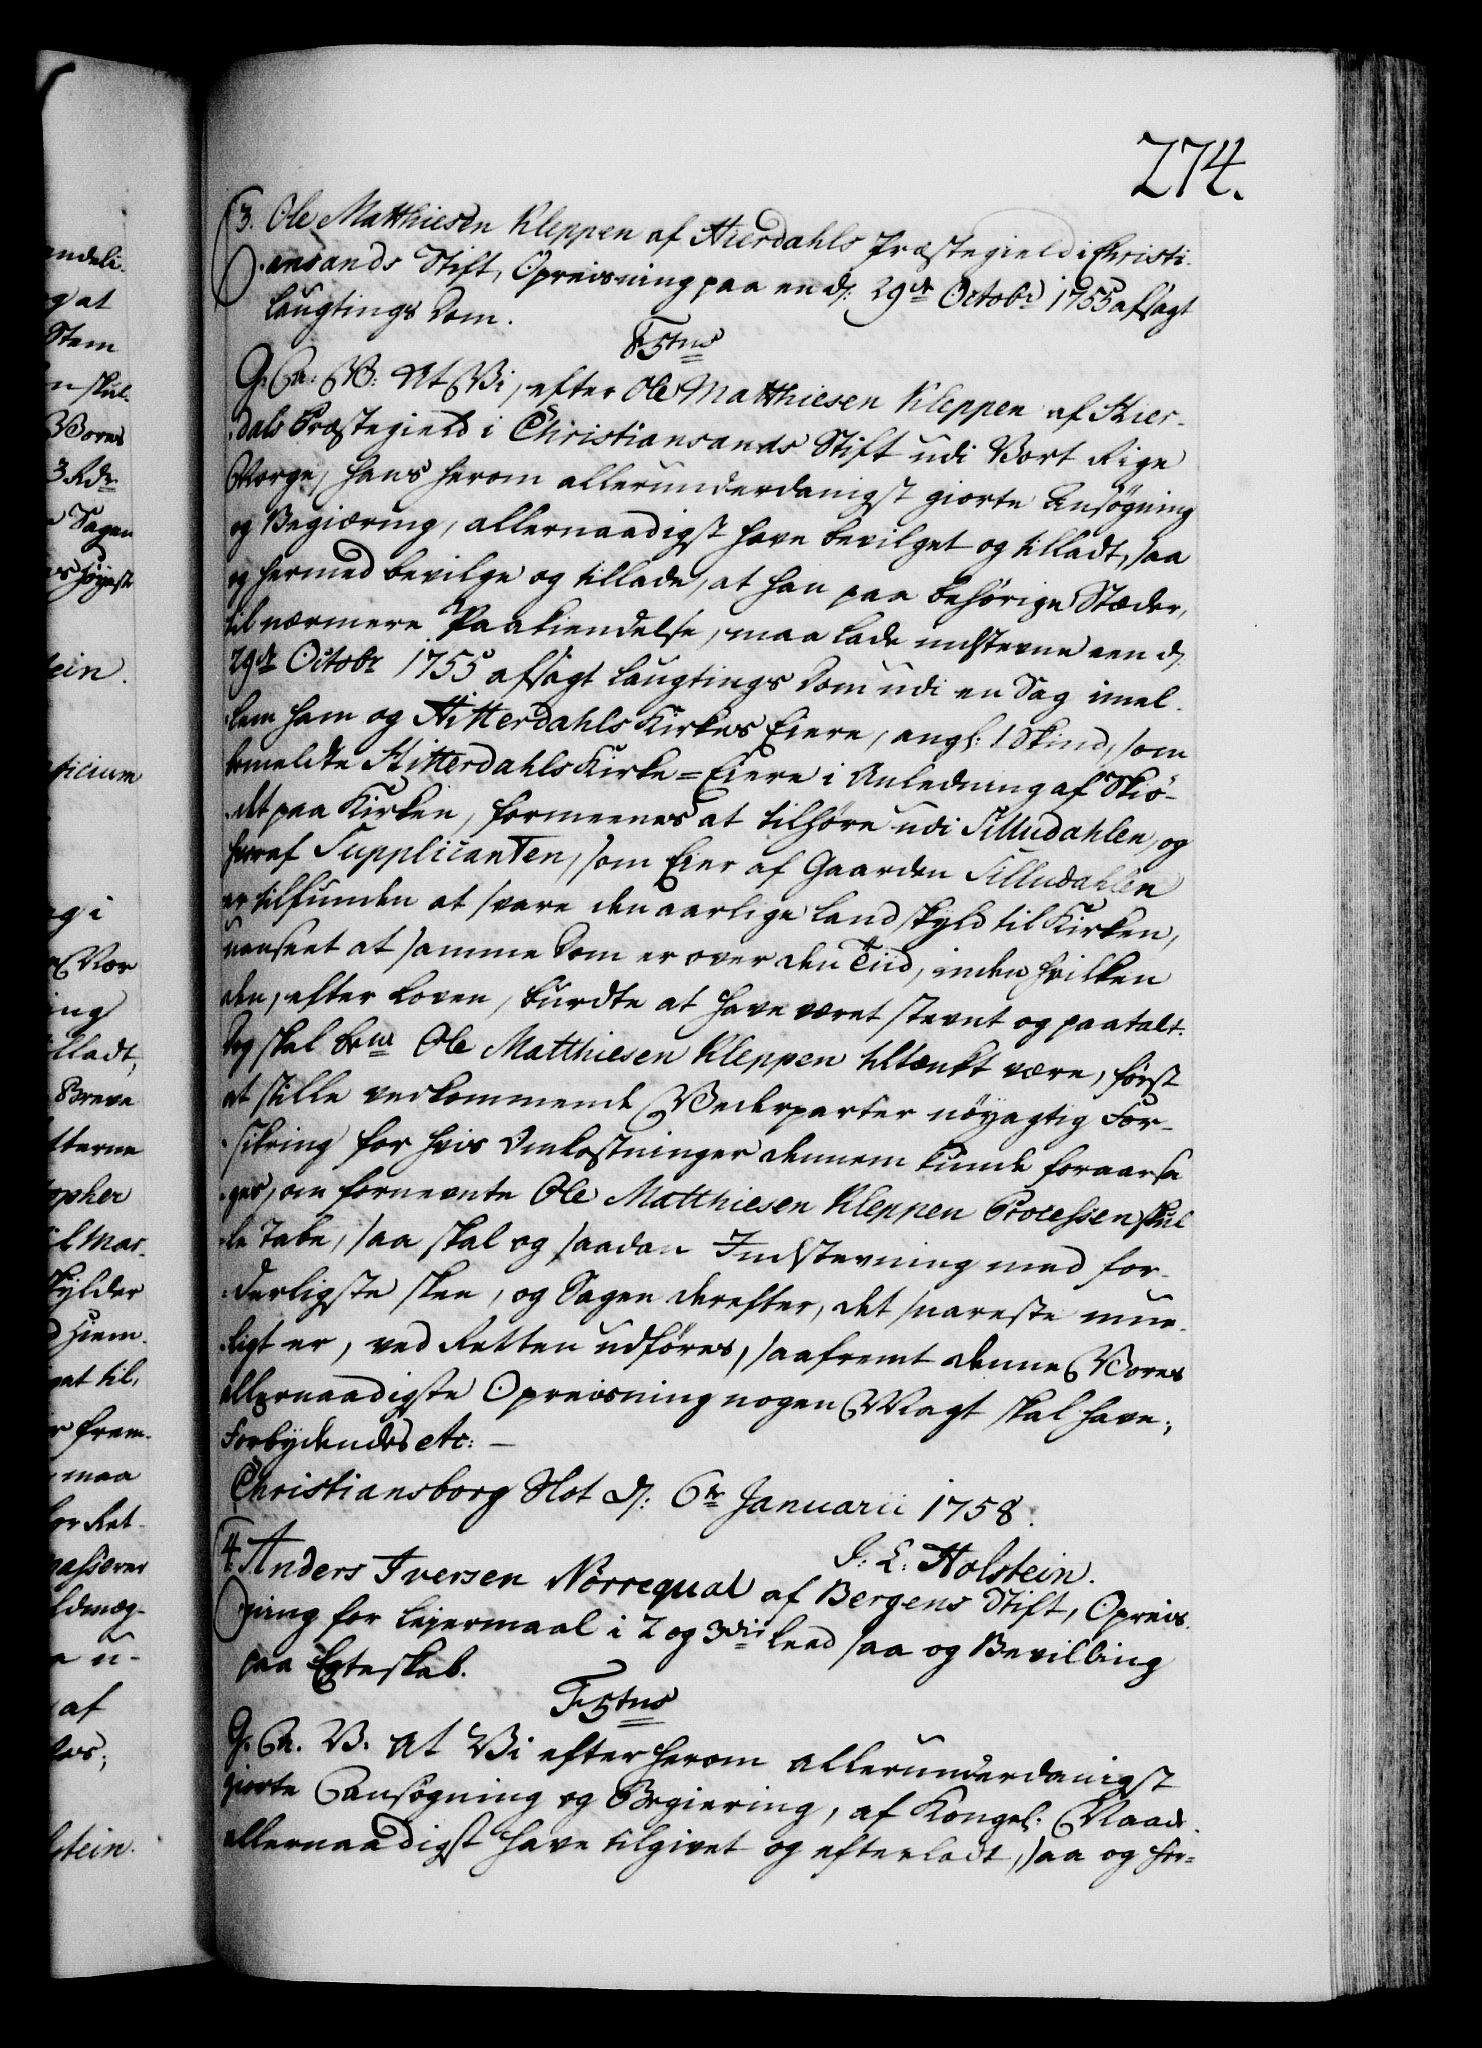 274.
3. Ole Matthiesen Kleppen af Hierdahls Præstegield i Christi-
ansands Stift, Opreisning paa en d: 29de Octobr 1755 afsagt
Laugtings Dom.
F5tus
G: A: V: At Vi, efter Ole Matthiesen Kleppen af Hier-
dals Præstegield i Christiansands Stift udi Vort Rige
Norge, hans herom allerunderdanigst giorte Ansøgning
og Begiæring, allernaadigst have bevilget og tilladt, saa
og hermed bevilge og tillade, at han paa behørige Stæder,
til nærmere Paakiendelse, maa lade indstevne een d:
29de Octobr 1755 afsagt Laugtings Dom udi en Sag imel-
lem ham og Hitterdahls Kirkes Eiere, ang: 1 Skind, som
bemeldte Hitterdahls Kirke-Eiere i Anledning af Skiö-
det paa Kirken, formeenes at tilhøre udi Tilludahlen, og
hvoraf Supplicanten, som Eier af Gaarden Tilludahlen
er tilfunden at svare den aarlige Landskyld til Kirken,
uanseet at samme Dom er over den Tiid, inden hvilken
den, efter Loven, burdte at have været stevnt og paatalt.
Dog skal bem: Ole Matthiesen Kleppen tiltænkt være, først
at stille vedkommende Vederparter nöyagtig For-
sikring for hvis Omkostninger dennem kunde foraarsa
ges, om fornevnte Ole Matthiesen Kleppen Processen skul
le tabe, saa skal og saadan Indstevning med for-
derligste skee, og Sagen derefter, det snareste mue-
ligt er, ved Retten udføres, saafremt denne Vores
allernaadigste Opreisning nogen Magt skal have;
Forbydendes etc: –
Christiansborg Slot d: 6te Januarii 1758.
J: L: Holstein.
4. Anders Iversen Nörrequal af Bergens Stift, Opreis-
ning for Leyermaal i 2 og 3die Leed saa og Bevilling
paa Egteskab.
F5tus
G. A. V. At Vi efter herom allerunderdanigst
giorte Ansøgning og Begiering, af Kongel: Naade
allernaadigst have tilgivet og efterladt, saa og her-